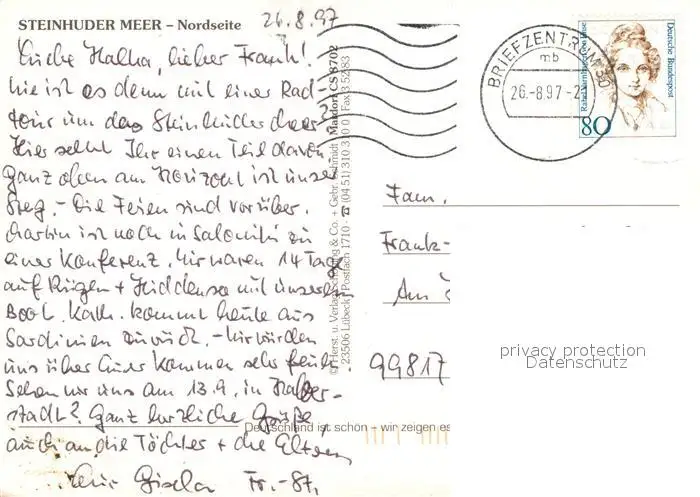 STEINHUDER MEER – Nordseite
26.8.97
Liebe Halka, lieber Frank!
Wie ist es denn mit einer Rad-
tour um das Steinhuder Meer.
Hier seht Ihr einen Teil davon.
Ganz oben am Horizont ist unser
Steg. - Die Ferien sind vorüber.
Martin ist noch in Saloniki zu
einer Konferenz. Wir waren 14 Tage
auf Rügen + Hiddensee mit unserem
Boot. Kath. kommt heute aus
Sardinien zurück. - Wir würden
uns über Euer Kommen sehr freuen.
Sehen wir uns am 13.9. in Halber-
stadt? Ganz herzliche Grüße,
auch an die Töchter + die Eltern
Gisela Fr.-St.
© Herst. u. Verlag Schöning & Co. + Gebr. Schmidt Mardorf CS 8702
23506 Lübeck, Postfach 1710 · ☎ (04 51) 310 310 0 Fax 3 52 83
BRIEFZENTRUM 30
mb
26.-8.97-2
Deutsche Bundespost
80
Fam.
Frank-
Am
99817
privacy protection
Datenschutz
Deutschland ist schön – wir zeigen es